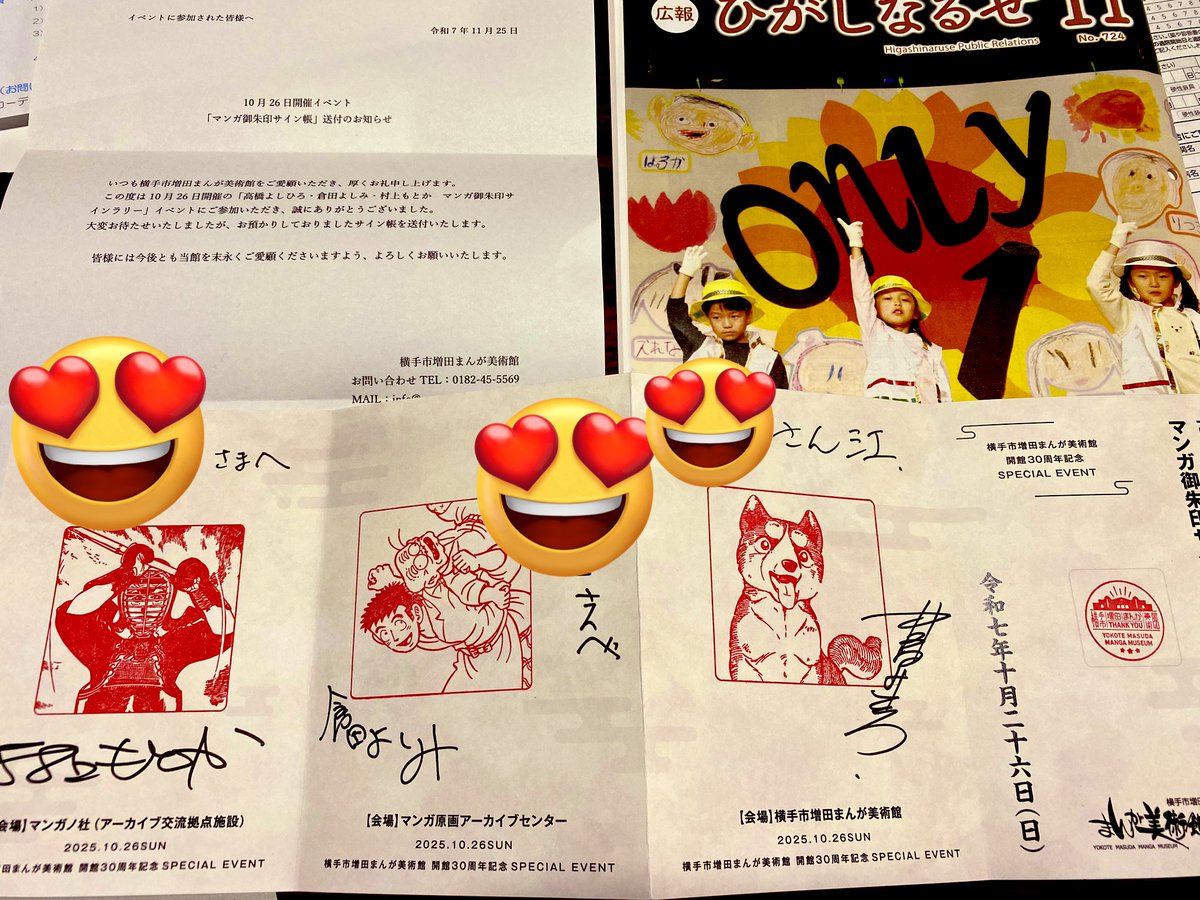 イベントに参加された皆様へ
令和7年11月25日
10月26日開催イベント
「マンガ御朱印サイン帳」送付のお知らせ
いつも横手市増田まんが美術館をご愛顧いただき、厚くお礼申し上げます。
この度は10月26日開催の「高橋よしひろ・倉田よしみ・村上もとか　マンガ御朱印サ
インラリー」イベントにご参加いただき、誠にありがとうございました。
大変お待たせいたしましたが、お預かりしておりましたサイン帳を送付いたします。
皆様には今後とも当館を末永くご愛顧くださいますよう、よろしくお願いいたします。
横手市増田まんが美術館
お問い合わせ TEL：0182-45-5569
MAIL：info@
広報
ひがしなるせ 11
Higashinaruse Public Relations
No.724
はるか
only
1
さまへ
村上もとか
【会場】マンガノ社（アーカイブ交流拠点施設）
2025.10.26SUN
増田まんが美術館 開館30周年記念 SPECIAL EVENT
さんへ
倉田よしみ
【会場】マンガ原画アーカイブセンター
2025.10.26SUN
横手市増田まんが美術館 開館30周年記念 SPECIAL EVENT
さん江
【会場】横手市増田まんが美術館
2025.10.26SUN
横手市増田まんが美術館 開館30周年記念 SPECIAL EVENT
横手市増田まんが美術館
開館30周年記念
SPECIAL EVENT
令和七年十月二十六日（日）
マンガ御朱印
THANK YOU
YOKOTE MASUDA
MANGA MUSEUM
横手市増田
まんが美術館
YOKOTE MASUDA MANGA MUSEUM